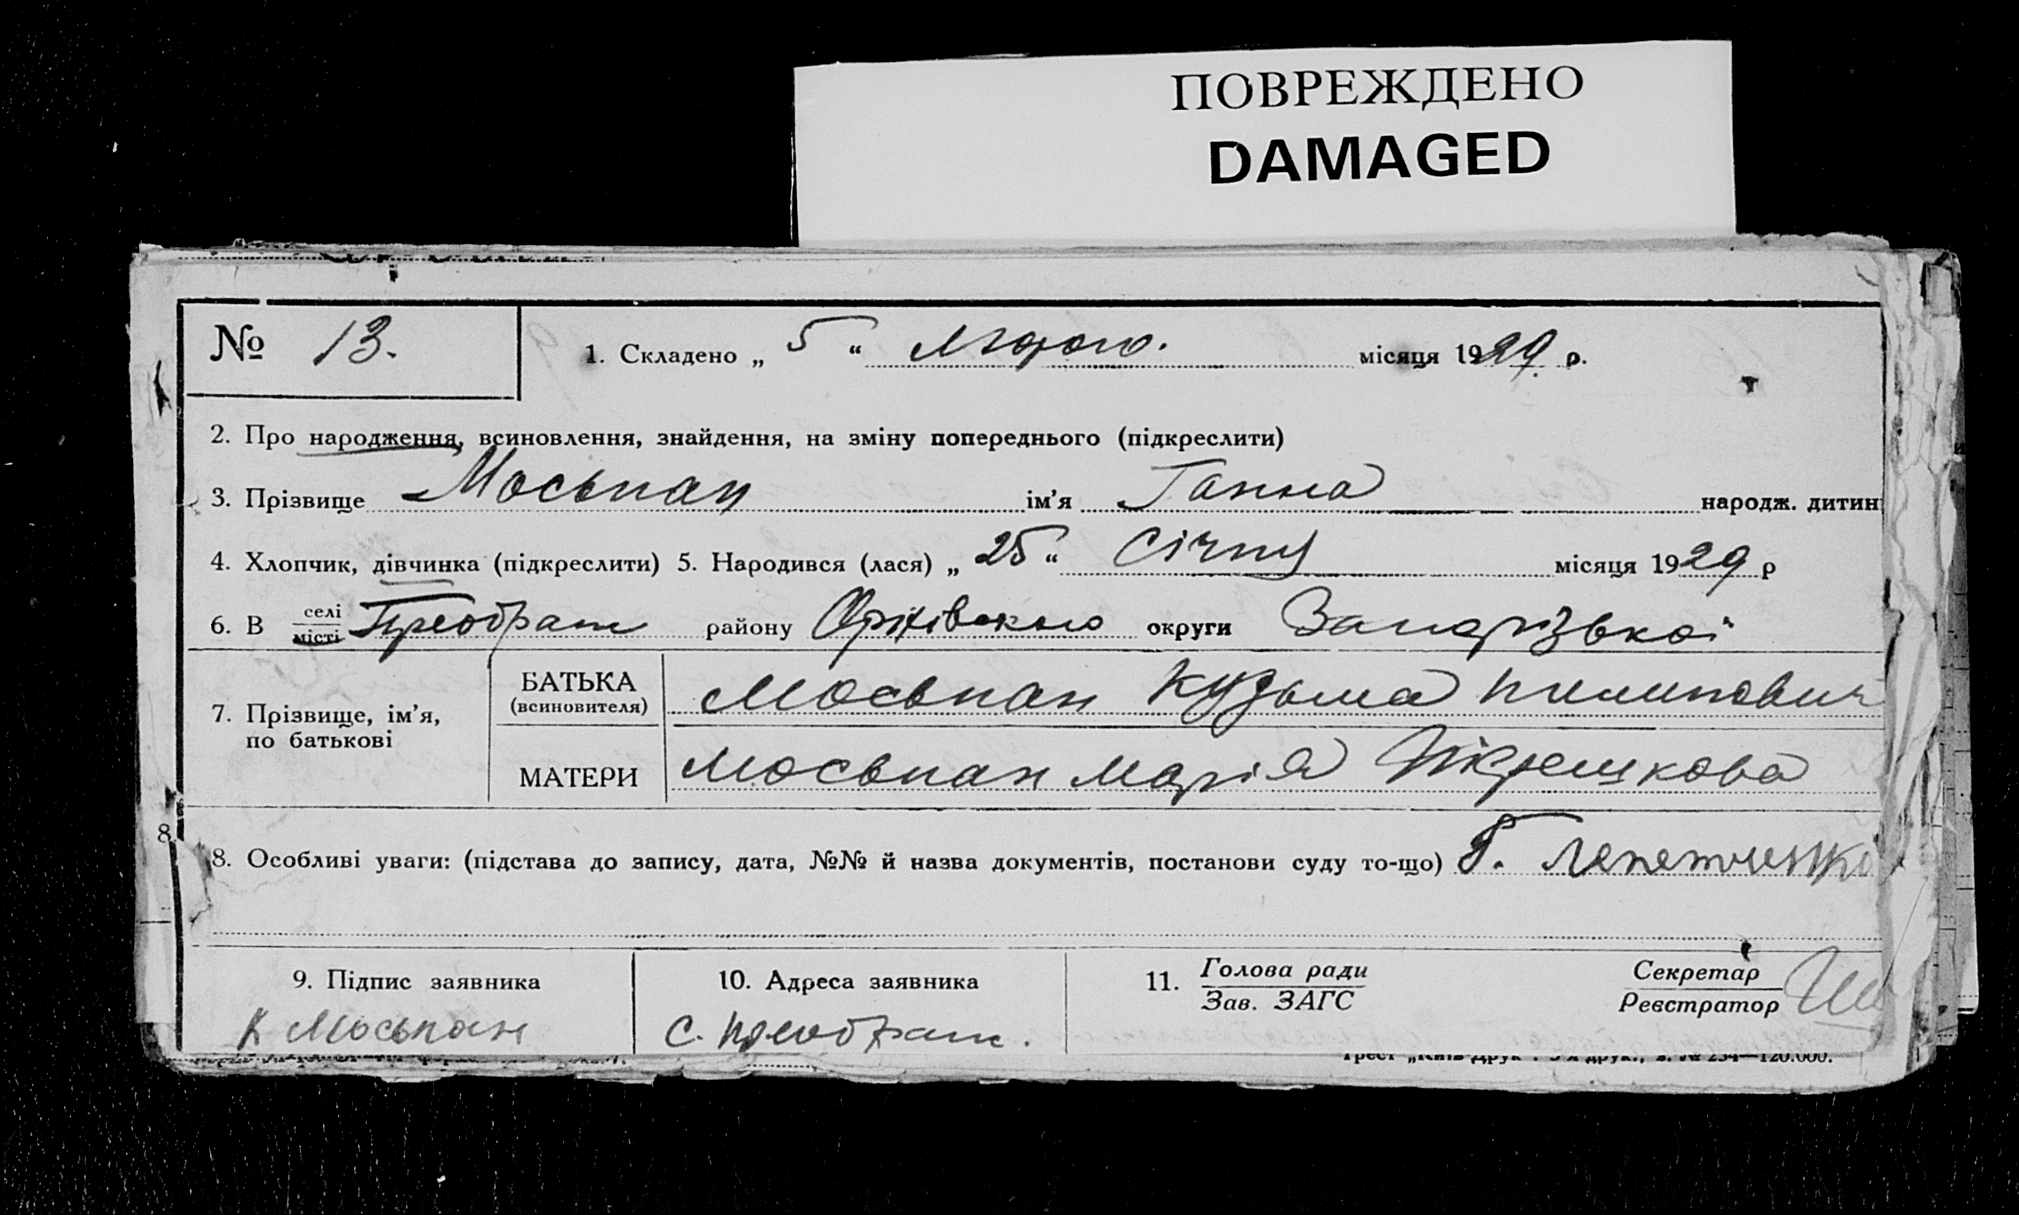 ПОВРЕЖДЕНО
DAMAGED
№ 13.
1. Складено „ 5 “ лютого. місяця 1929 р.
2. Про народження, всиновлення, знайдення, на зміну попереднього (підкреслити)
3. Прізвище Моськпан ім’я Ганна народж. дитин
4. Хлопчик, дівчинка (підкреслити) 5. Народився (лася) „ 25 “ Січня місяця 1929 р
6. В селі місті Преображ району Оріхівського округи Запорізької
7. Прізвище, ім’я, по батькові
БАТЬКА (всиновителя) Мосьпан Кузьма Пилипович
МАТЕРИ Мосьпан Марія
8
8. Особливі уваги: (підстава до запису, дата, №№ й назва документів, постанови суду то-що)
9. Підпис заявника
К Мосьпан
10. Адреса заявника
с. Преображ.
11. Голова ради
Зав. ЗАГС
Секретар
Реєстратор
Трест „Київ-Друк“. 3-я друк., з. № 254—120.000.